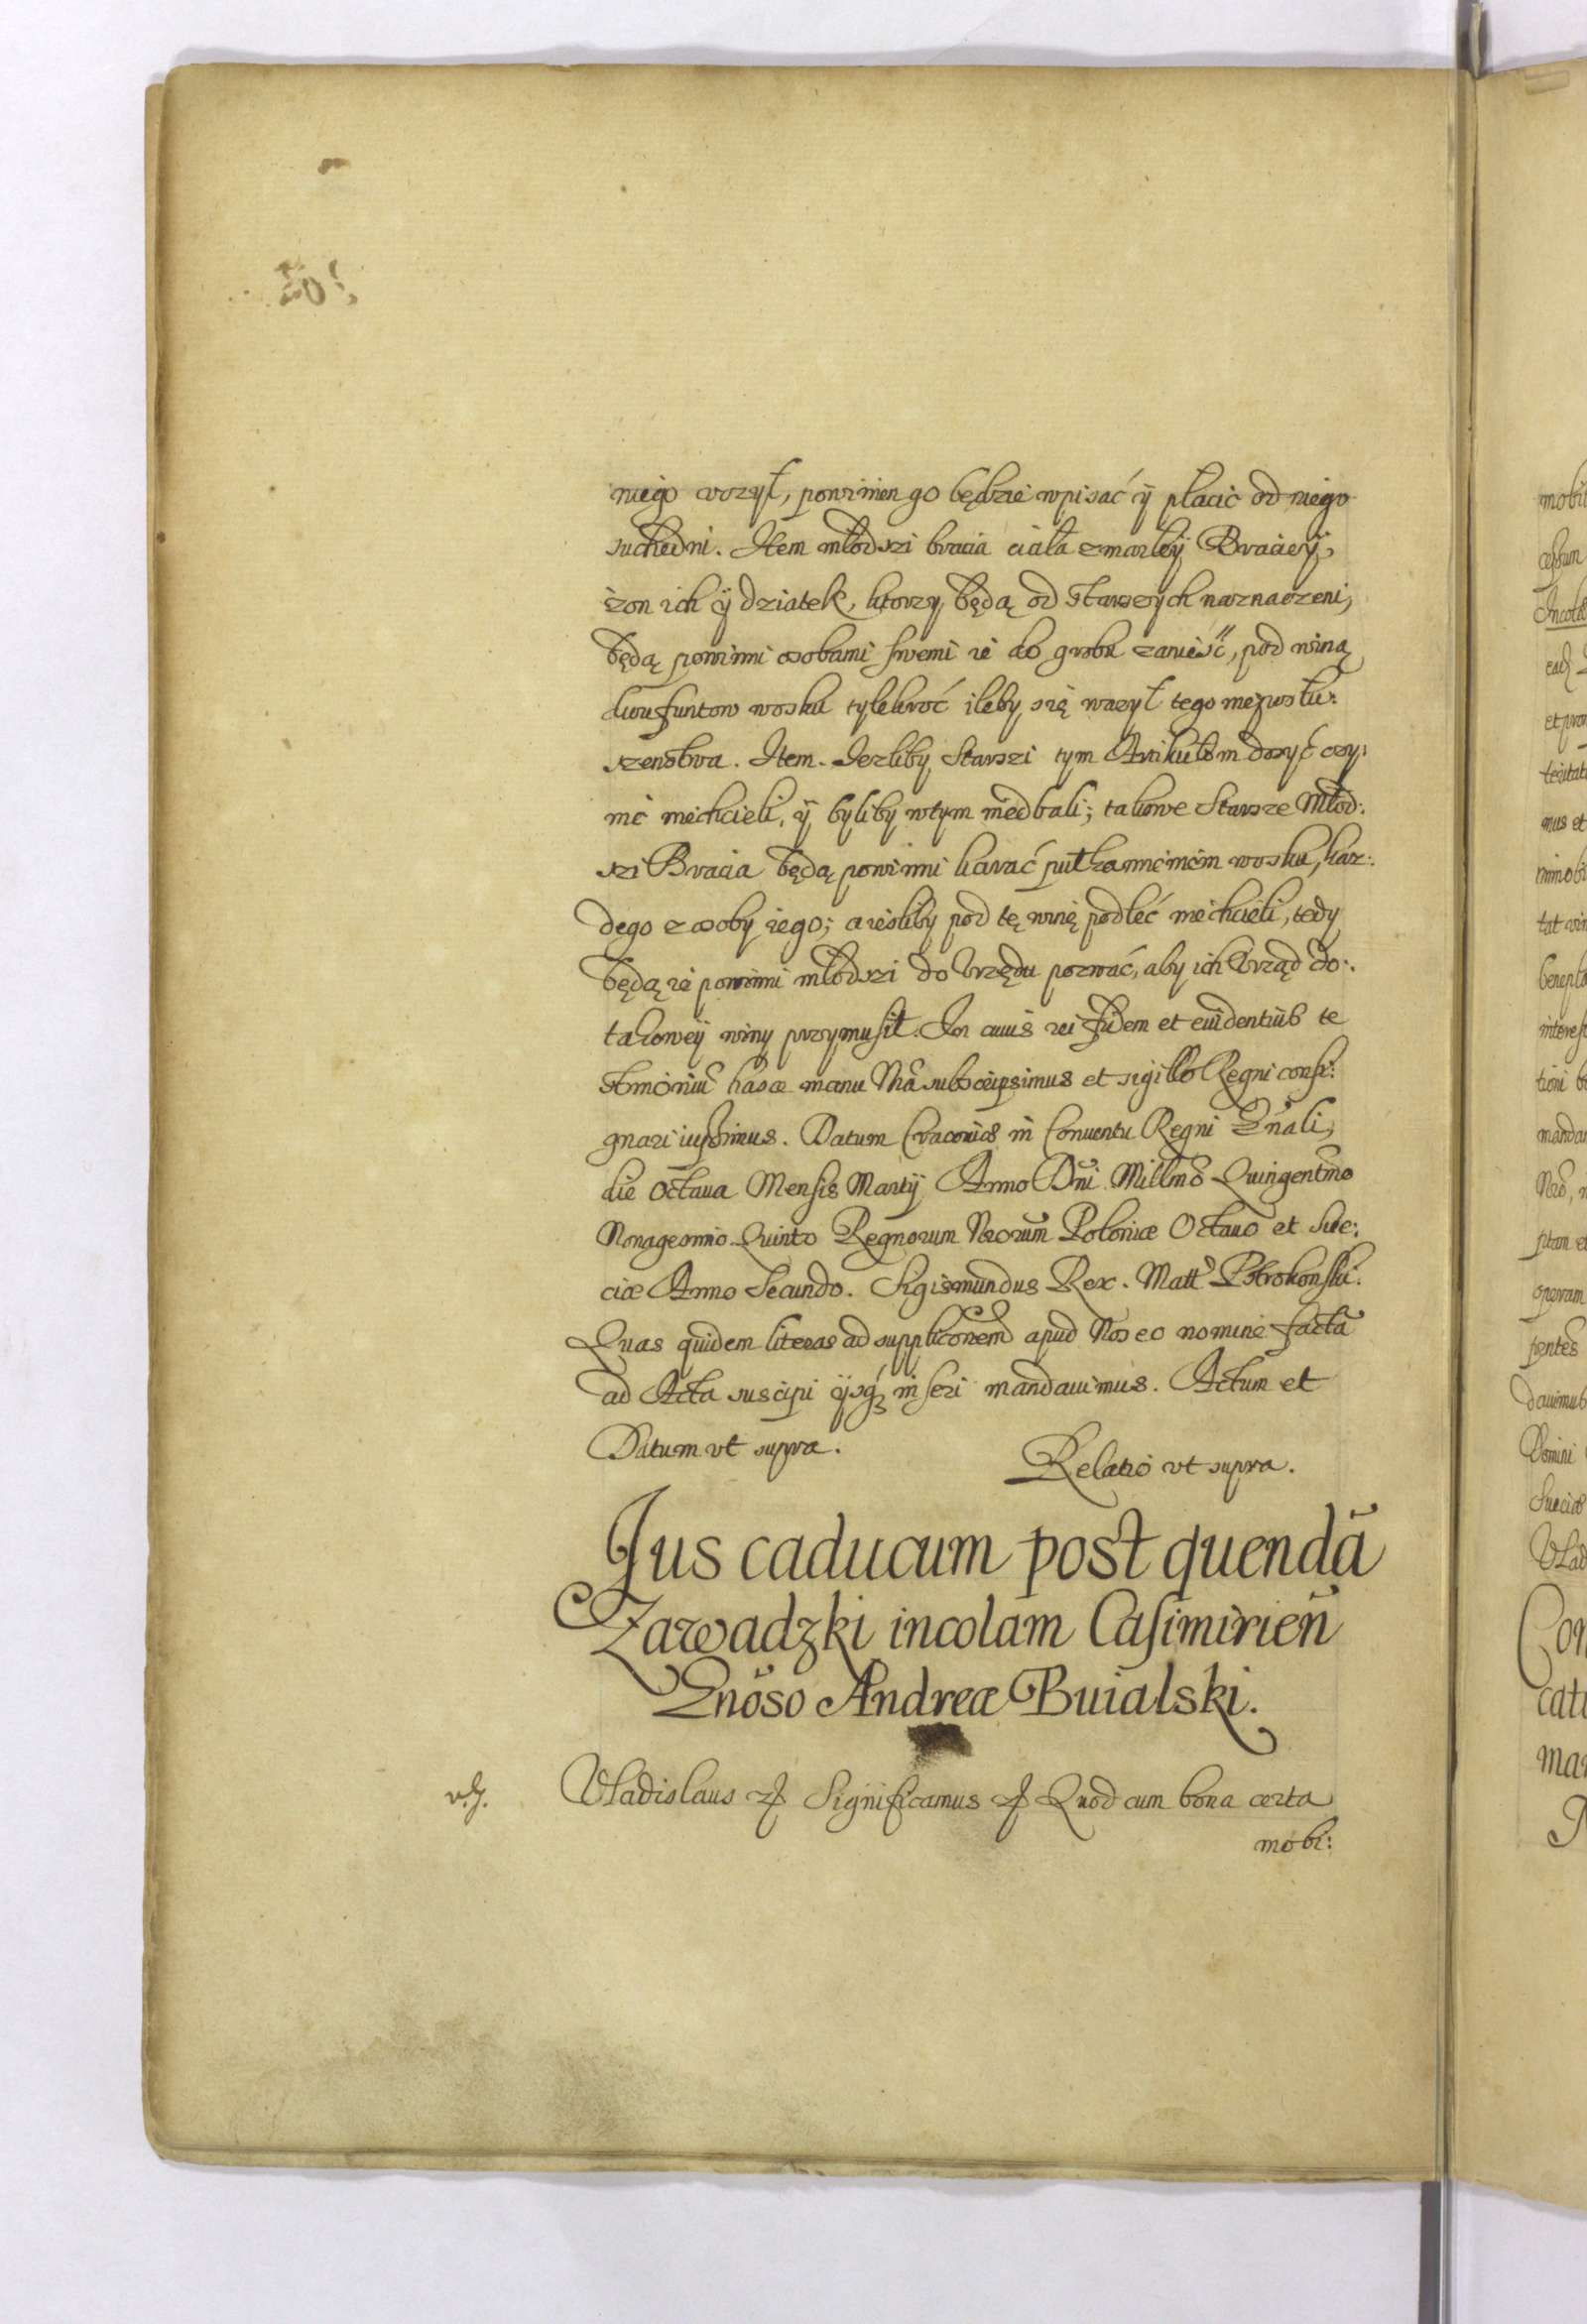 niego uczył, powinien go będzie wpisać ÿ płacić od niego
suchedni. Item młodszi bracia ciała zmarłeÿ Braciey,
żon ich ÿ dziatek, ktorzy będą od starszych naznaczeni,
będą powinni osobami swemi ie do grobu zanieść, pod winą
dwu funtow wosku tylekroć ileby się ważył tego nieposłu:
szenstwa. Item. Jezliby Starszi tym Artikułom dosyć czy:
nić niechcieli, ÿ byliby wtym niedbali; takowe Starsze Młod:
szi Bracia będą powinni karać puł kamieniem wosku, kaz:
dego z osoby iego; a iesliby pod tę winę podledz niechcieli, tedy
będą ie powinni młodszi do Vrzędu pozwać, aby ich Vrząd do:
takoweÿ winy przymusił. In cuius rei fidem et euidentius te
stmoniũ hasce manu Nrã subscripsimus et sigillo Regni consi:
gnari iussimus. Datum Cracouiæ in Conuentu Regni Gnãli,
die Octaua Mensis Martÿ Anno Dnĩ Millmõ Quingentmõ
Nonagesimo Quinto Regnorum Nrorũm Poloniæ Octauo et Sue:
ciæ Anno Secundo. Sigismundus Rex. Matt: Pstrokonski.
Quas quidem literas ad supplicõnem apud Nos eo nomine factã
ad Acta suscipi ÿsq₃ inseri mandauimus. Actum et
Datum vt supra.
Relatio vt supra.
Jus caducum post quendã
Zawadzki incolam Casimirieñ
Gnõso Andreæ Buialski.
Vladislaus etc Significamus etc Quod cum bona certa
mobi: